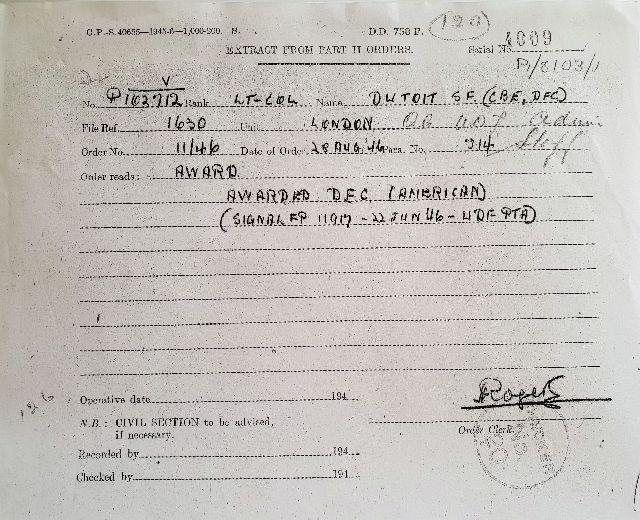 G.P.-S.40655—1945-6—1,000-200. S. D.D. 758 F. 120
EXTRACT FROM PART II ORDERS. Serial No. 4009
B/8103/1
V
No. P 103912 Rank LT-COL Name DU TOIT SF (CBE, DFC)
File Ref. 1630 Unit LONDON Admin
Order No. 11/46 Date of Order 28 AUG 46 Para. No. 314 Staff
Order reads: AWARD
AWARDED DFC (AMERICAN)
(SIGNAL FP 11917 - 22 JUN 46 - UDF PTA)
126
Operative date 194
N.B.: CIVIL SECTION to be advised,
if necessary.
Order Clerk.
Recorded by 194
Checked by 194